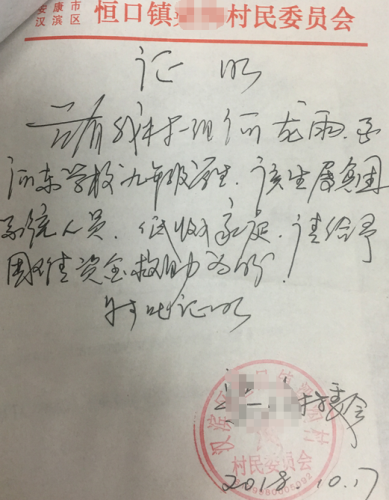 安康市汉滨区 恒口镇 村民委员会
证明
兹有我村十一组何龙雨,系
河东学校九年级学生.该生属贫困
系统人员.低收入家庭.请给予
困难资金救助为盼!
特此证明
村委会
村民委员会
2018.10.17